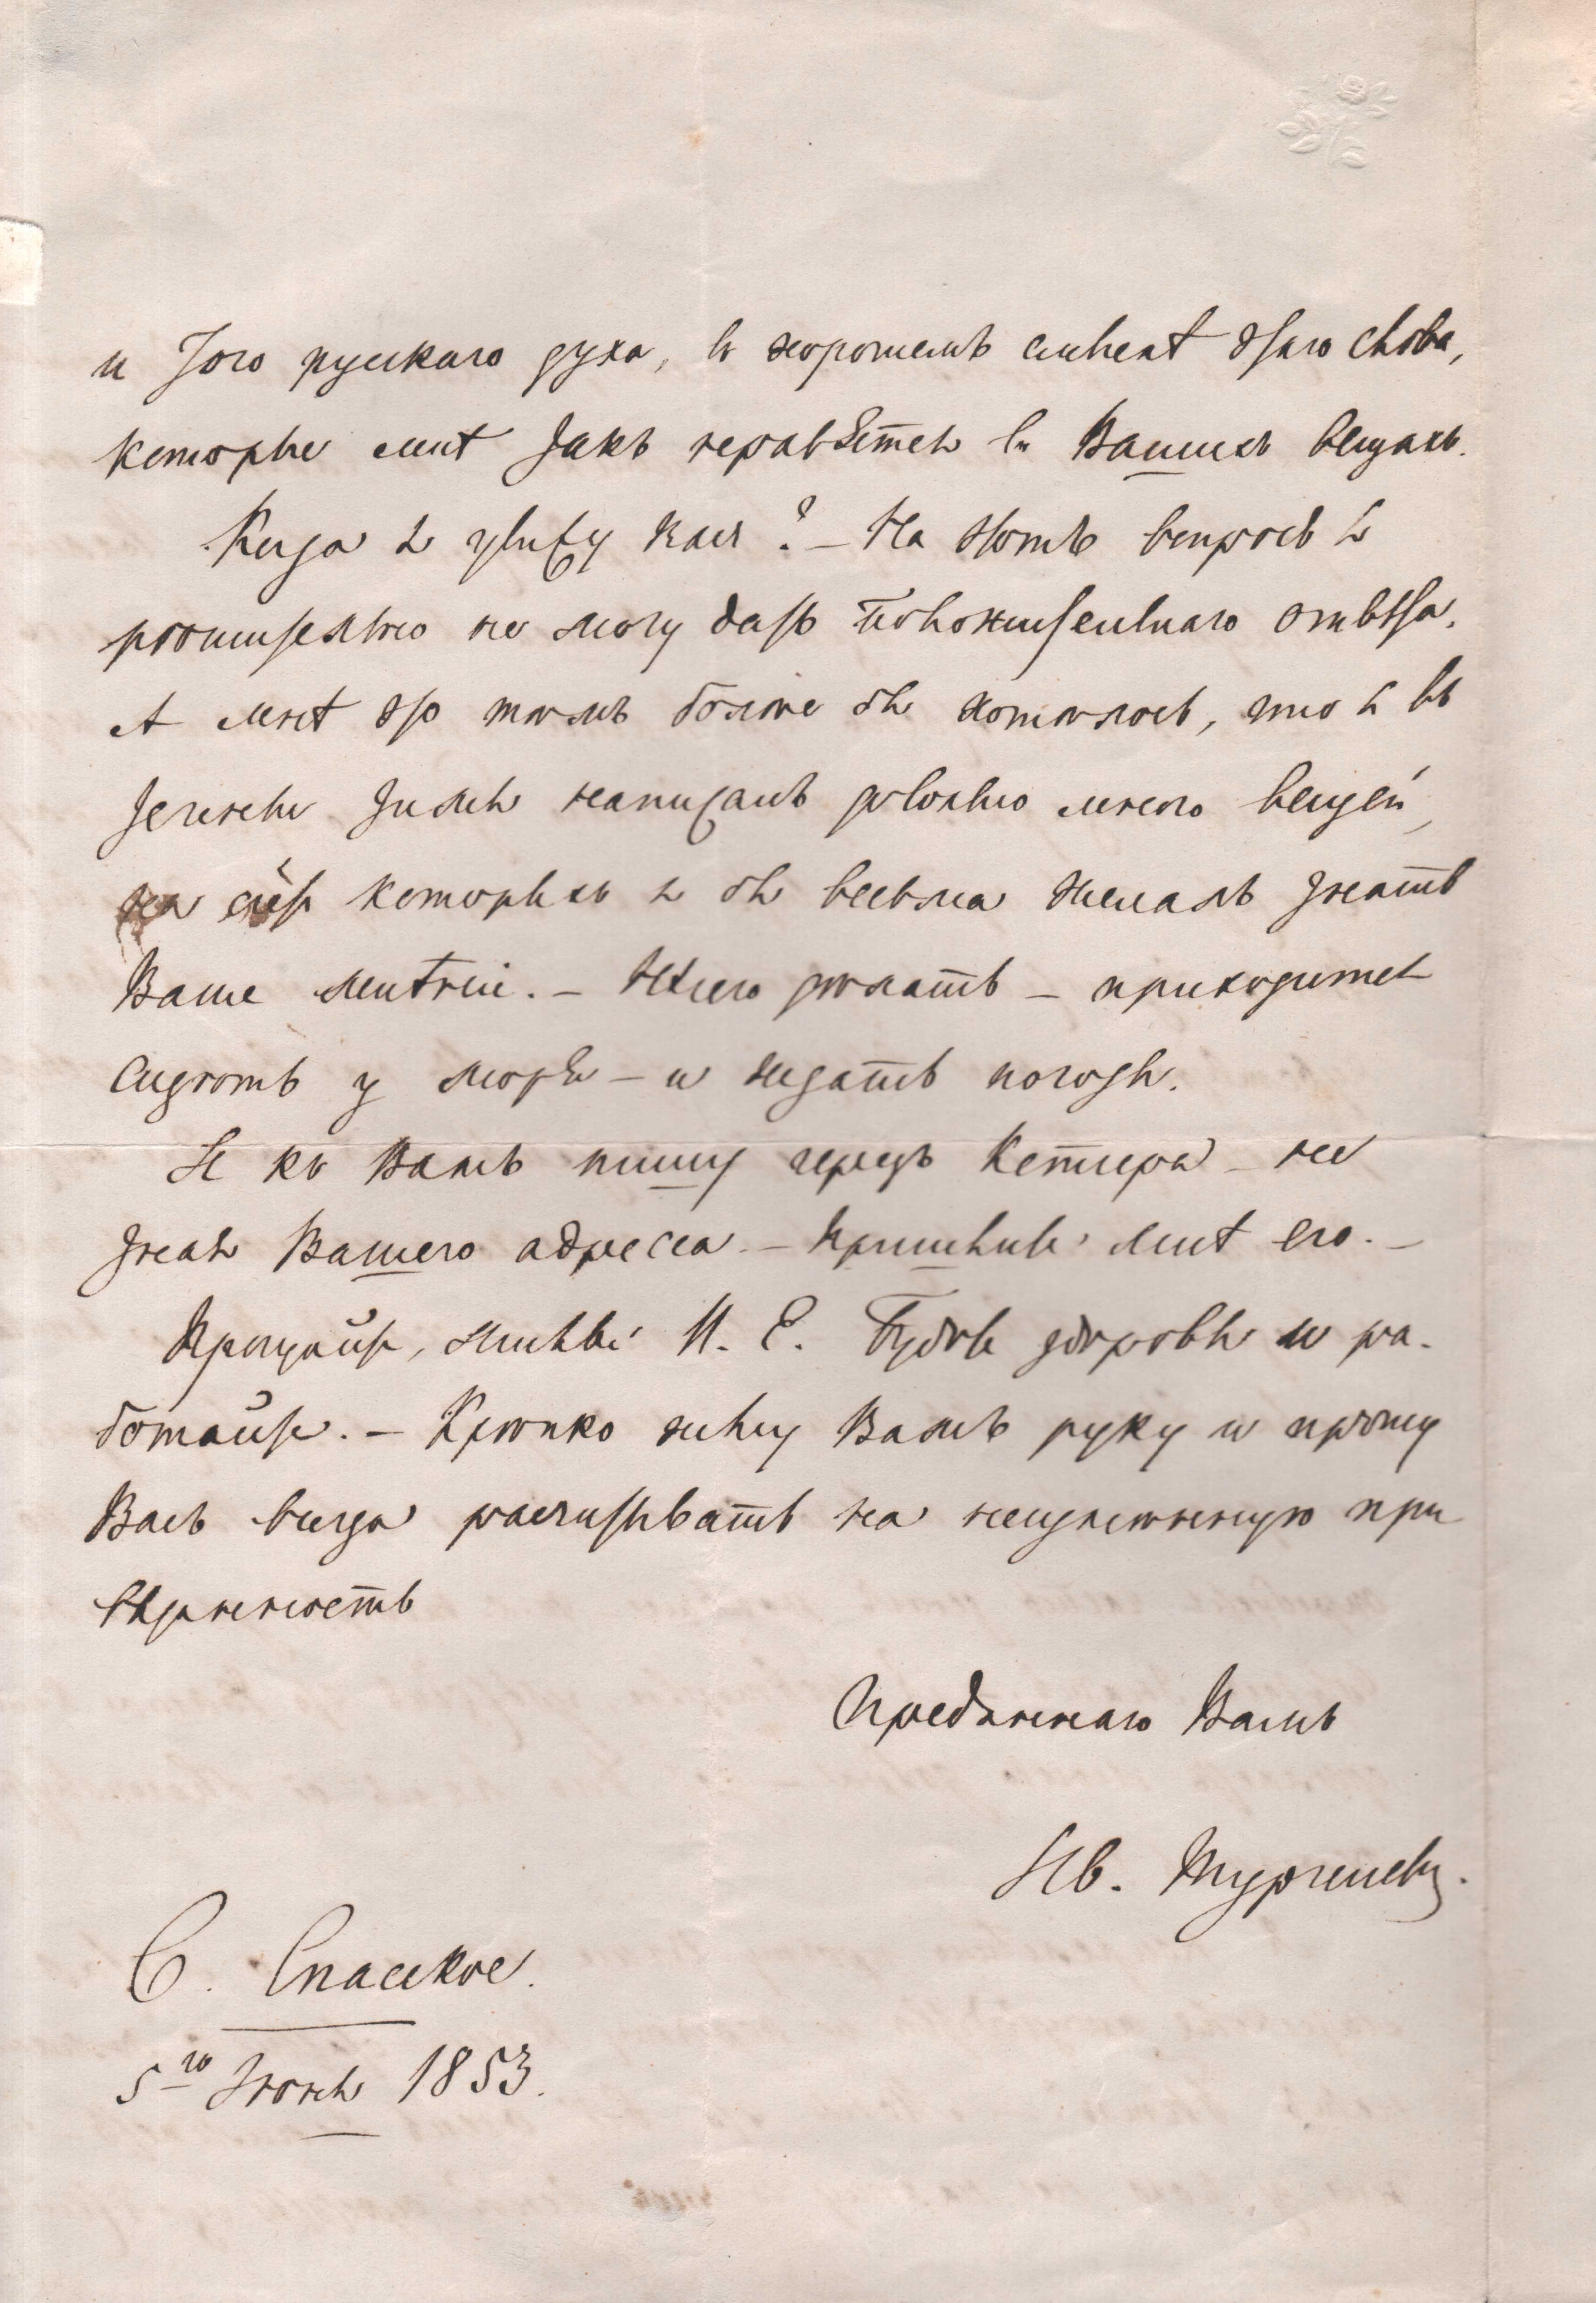 и того русскаго духа, въ хорошемъ смыслѣ этаго слова,
которые мнѣ такъ нравятся въ Вашихъ вещахъ.
Когда я увижу Васъ? — На этотъ вопросъ я
рѣшительно не могу дать положительнаго отвѣта.
А мнѣ это тѣмъ болѣе бы хотѣлось, что я въ
теченьи зимы написалъ довольно много вещей,
на счетъ которыхъ я бы весьма желалъ знать
Ваше мнѣніе. — Нечего дѣлать — приходится
сидѣть у моря — и ждать погоды.
Я къ Вамъ пишу черезъ Кетчера — не
зная Вашего адресса. — Пришлите мнѣ его. —
Прощайте, милый И. Е. Будьте здоровы и ра-
ботайте. — Крѣпко жму Вамъ руку и прошу
Васъ всегда расчитывать на неизмѣнную при
вязанность
Преданнаго Вамъ
Ив. Тургеневъ.
С. Спасское.
5го Іюня 1853.